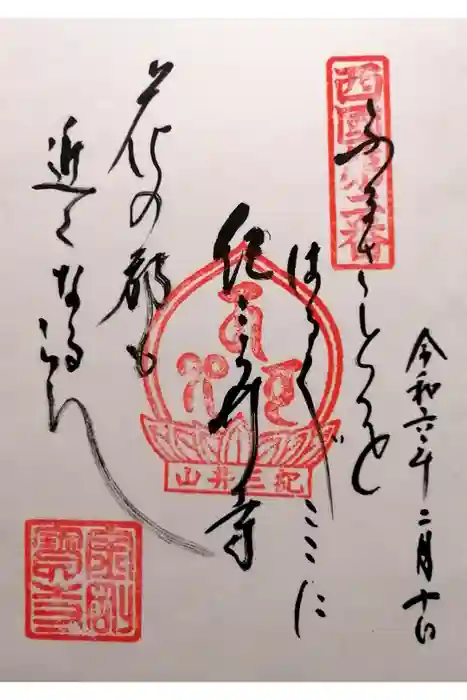 西國第二番
令和六年二月十日
ふるさとを
はる〲ここに
紀三井寺
花の都も
近くなるらん
紀三井山
金剛
寶寺